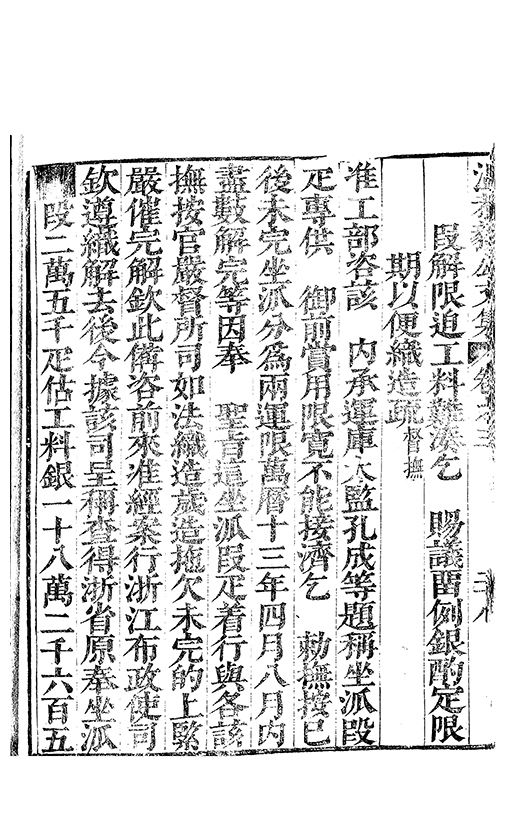 溫恭毅公文集 卷之三
段解限迫工料難湊乞　賜議留例銀酌定限
期以便織造疏督撫
准工部咨該　內承運庫太監孔成等題稱坐派段
疋專供　御前賞用限寬不能接濟乞　勅撫按已
後未完坐派分為兩運限萬曆十三年四月八月內
盡數解完等因奉　聖旨這坐派段疋着行與各該
撫按官嚴督所司如法織造歲造拖欠未完的上緊
嚴催完解欽此備咨前來准經案行浙江布政使司
欽遵織解去後今據該司呈稱查得浙省原奉坐派
段二萬五千疋估工料銀一十八萬二千六百五